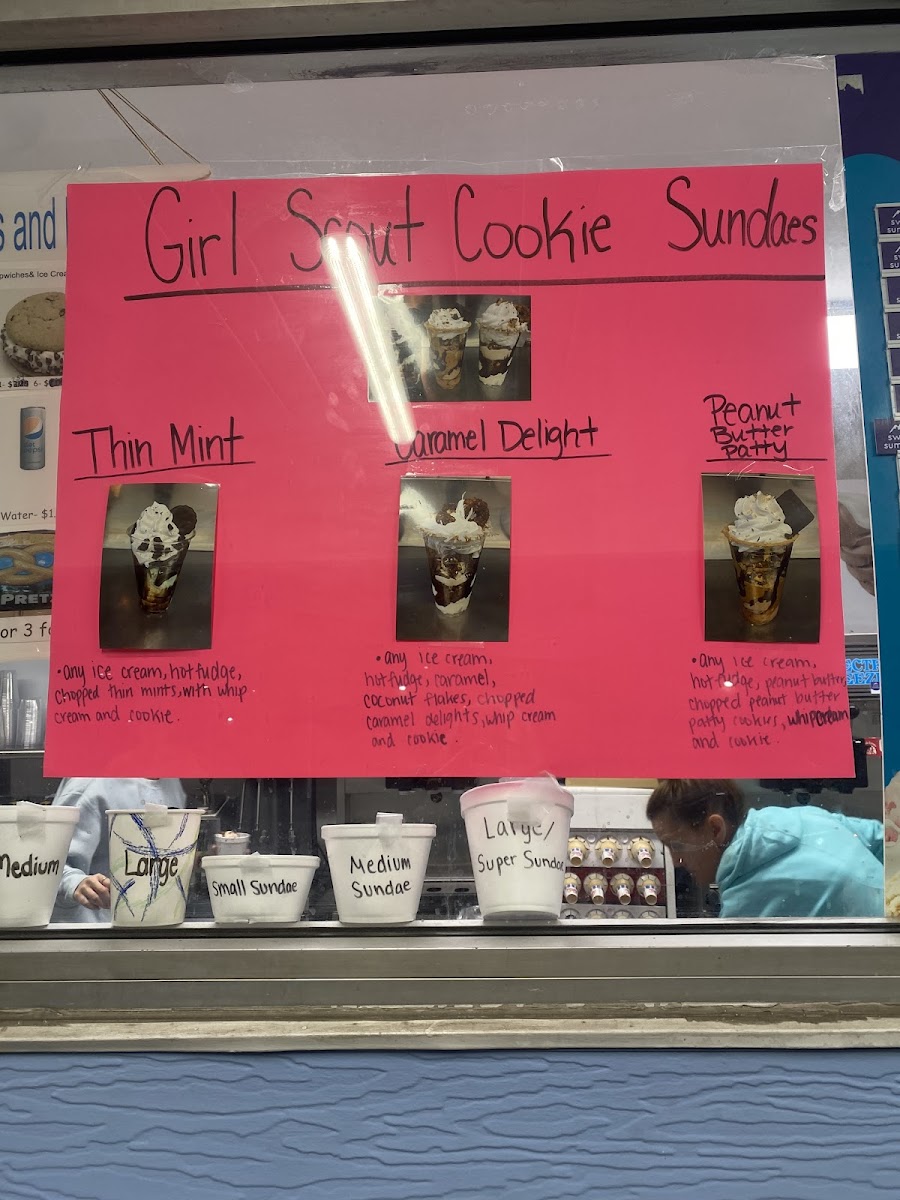 Girl Scout Cookie Sundaes
s and
Thin Mint
Caramel Delight
Peanut
Butter
Patty
• any ice cream, hot fudge,
chopped thin mints, with whip
cream and cookie.
• any ice cream,
hot fudge, caramel,
coconut flakes, chopped
caramel delights, whip cream
and cookie.
• any ice cream,
hot fudge, peanut butter,
chopped peanut butter
patty cookies, whip cream
and cookie.
pwiches& Ice Crea
pepsi
Water- $1.
PRET
or 3 fo
Medium
Large
Small Sundae
Medium
Sundae
Large/
Super Sundae